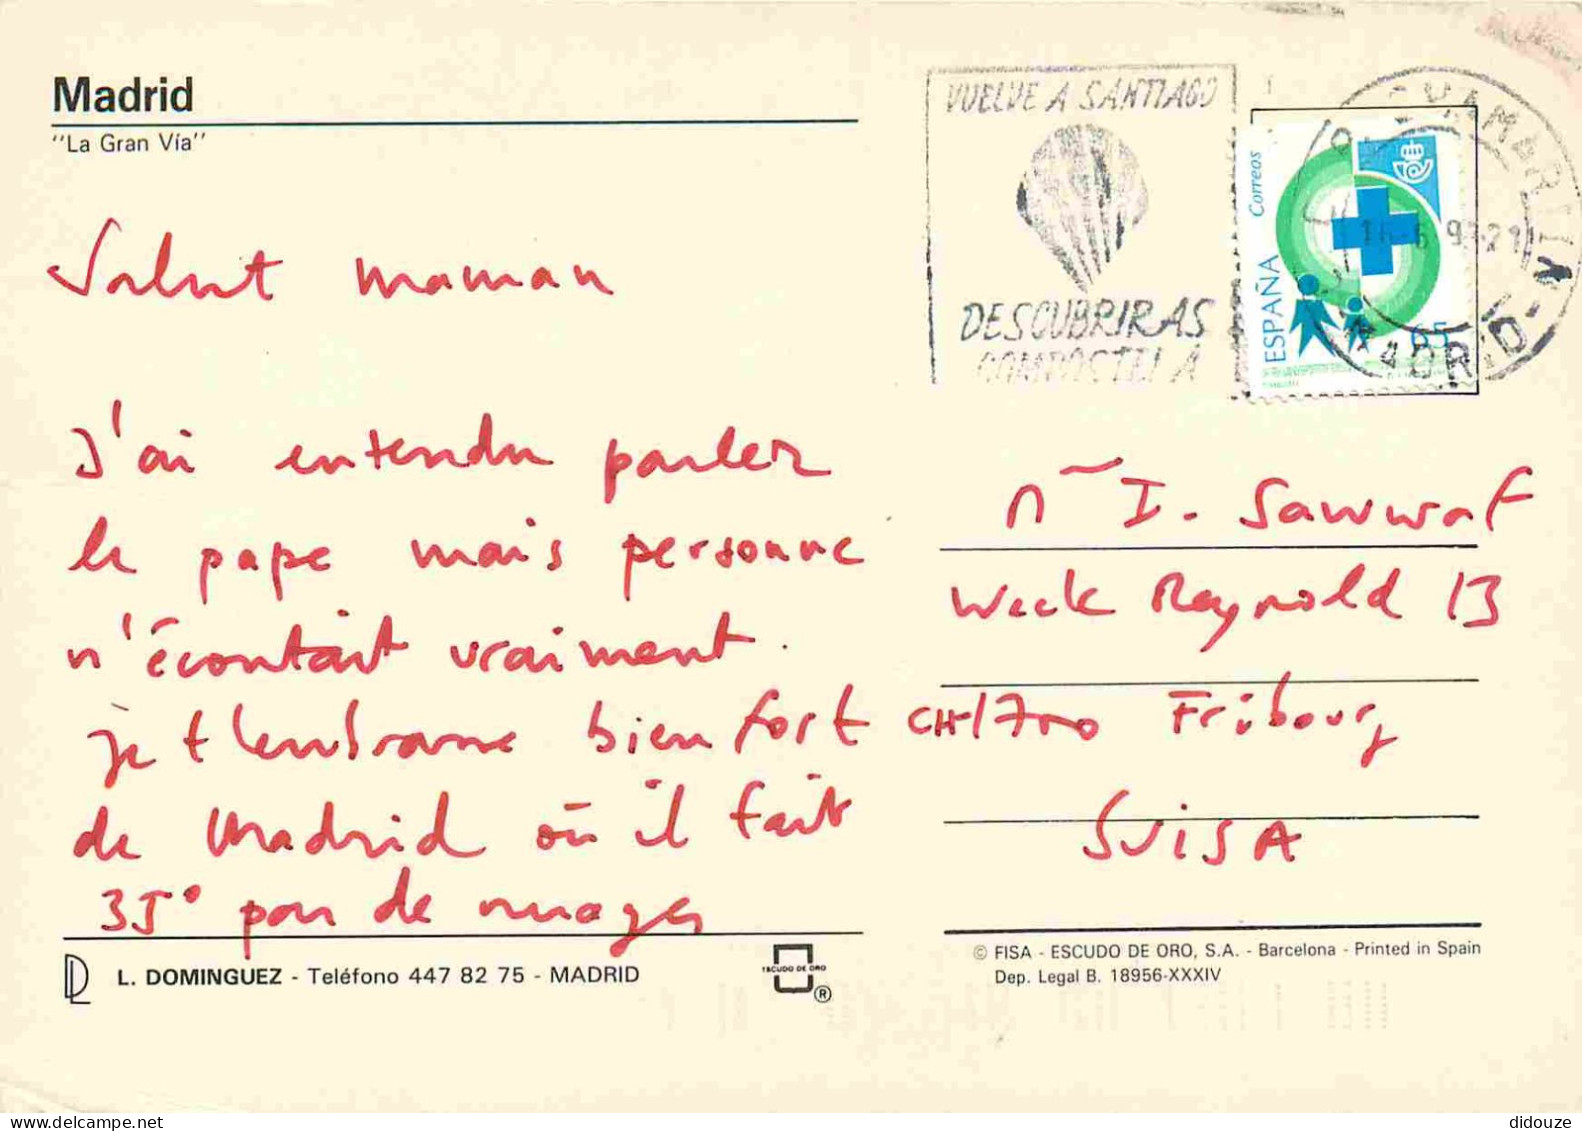 Madrid
"La Gran Vía"
VUELVE A SANTIAGO
DESCUBRIRAS
COMPOSTELA
CHAMARTIN
MADRID
Correos
ESPAÑA
65
Salut maman
J'ai entendu parler
le pape mais personne
n'écoutait vraiment.
je t'embrasse bien fort
de Madrid où il fait
35° pas de nuages
Me I. Sawwaf
Weck Reynold 13
CH-1700 Fribourg
SUISA
L. DOMINGUEZ - Teléfono 447 82 75 - MADRID
ESCUDO DE ORO
®
© FISA - ESCUDO DE ORO, S.A. - Barcelona - Printed in Spain
Dep. Legal B. 18956-XXXIV
didouze